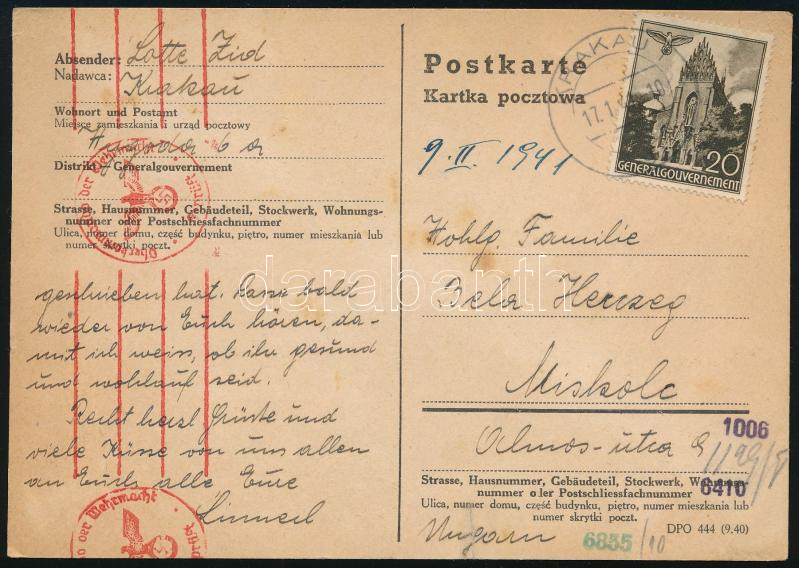 Absender: Lotte Zid
Nadawca: Krakau
Wohnort und Postamt
Miejsce zamieszkania i urząd pocztowy
6 a
Distrikt — Generalgouvernement
Strasse, Hausnummer, Gebäudeteil, Stockwerk, Wohnungs-
nummer oder Postschliessfachnummer
Ulica, numer domu, część budynku, piętro, numer mieszkania lub
numer skrytki poczt.
geschrieben hat. Lasst bald
wieder von Euch hören, da-
mit ich weiss, ob ihr gesund
und wohlauf seid.
Recht herzl Grüsse und
viele Küsse von uns allen
an Euch alle Eure
Oberkommando der Wehrmacht
geprüft
der Wehrmacht
Postkarte
Kartka pocztowa
KRAKAU
17.1
20
GENERALGOUVERNEMENT
9. II. 1941
Familie
Bela Herzeg
Miskolc
Almos-utca 9
1006
Strasse, Hausnummer, Gebäudeteil, Stockwerk, Wohnungs-
nummer oder Postschliessfachnummer
6410
Ulica, numer domu, część budynku, piętro, numer mieszkania lub
numer skrytki poczt.
DPO 444 (9.40)
Ungarn
6835/10
darabanth